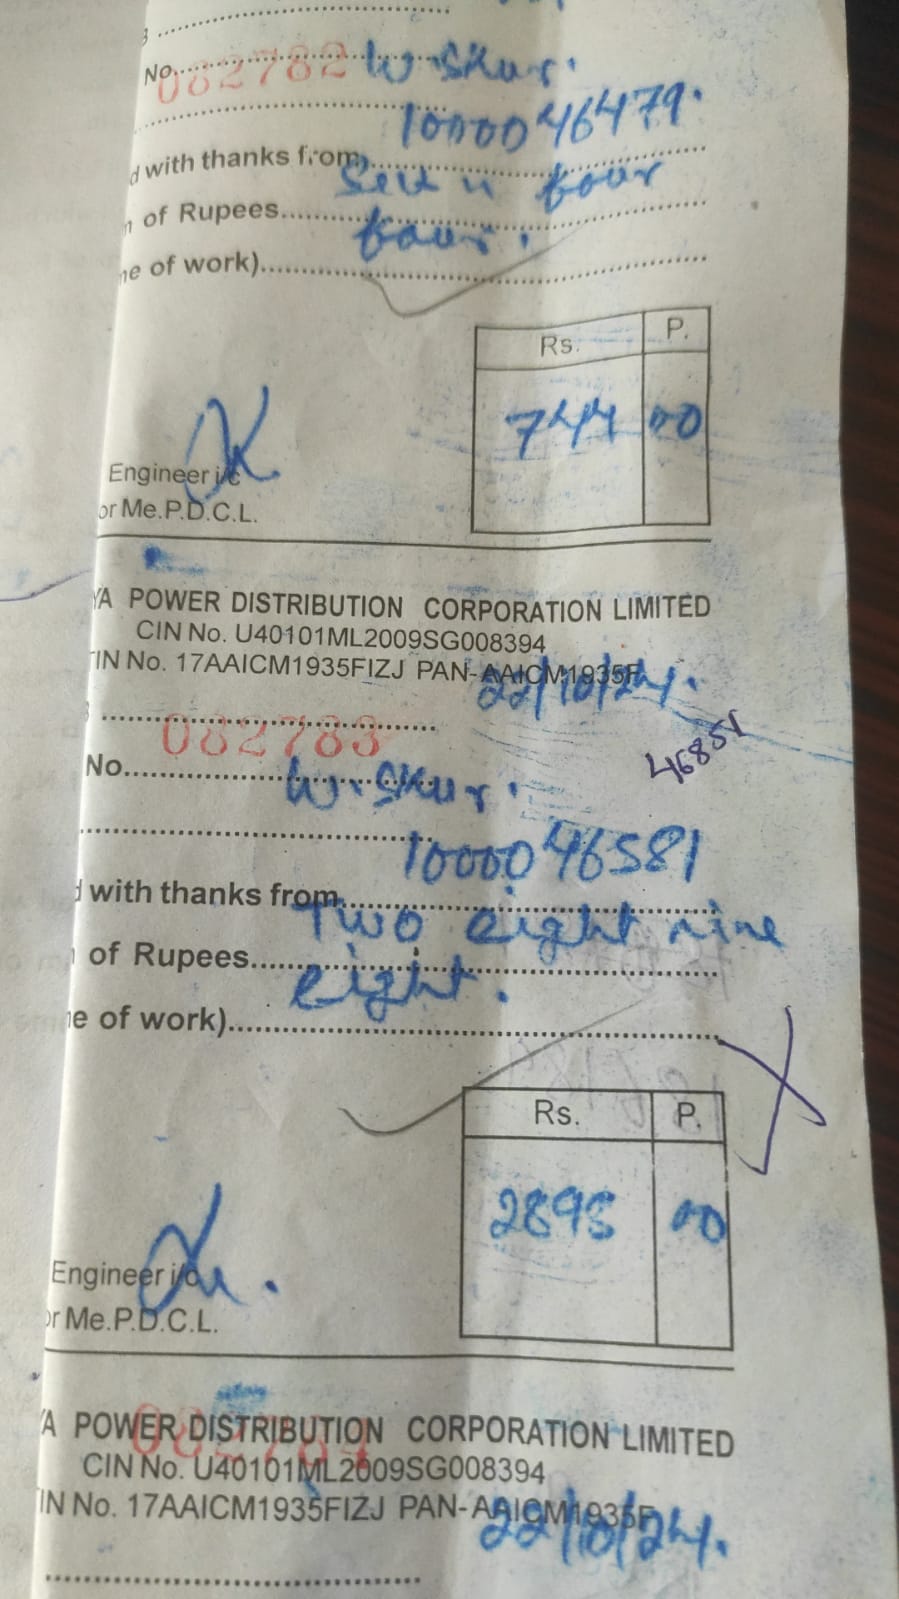 No................
082782 W. Skur.
1000046479.
d with thanks from..................
four
of Rupees..................
four.
e of work)..................
Rs. P.
744 00
Engineer i/c
or Me.P.D.C.L.
YA POWER DISTRIBUTION CORPORATION LIMITED
CIN No. U40101ML2009SG008394
TIN No. 17AAICM1935FIZJ PAN-AAICM1935F
22/10/24.
082783
46851
No................
W. Skur.
1000046581
d with thanks from..................
Two eight nine
of Rupees..................
eight.
e of work)..................
Rs. P.
2898 00
Engineer i/c
or Me.P.D.C.L.
082784
YA POWER DISTRIBUTION CORPORATION LIMITED
CIN No. U40101ML2009SG008394
IN No. 17AAICM1935FIZJ PAN-AAICM1935F
22/10/24.